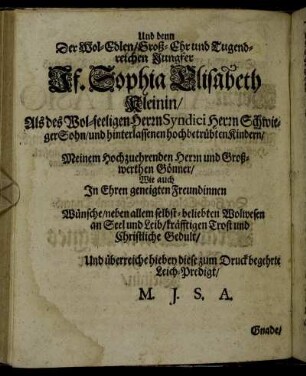 Und denn
Der Wol-Edlen/ Groß-Ehr und Tugend-
reichen Jungfer
Jf. Sophia Elisabeth
Kleinin/
Als des Wol-seeligen Herrn Syndici Herrn Schwie-
ger Sohn/ und hinterlassenen hochbetrübten Kindern/
Meinem Hochzuehrenden Herrn und Groß-
werthen Gönner/
Wie auch
In Ehren geneigten Freundinnen
Wünsche/ neben allem selbst-beliebten Wolwesen
an Seel und Leib/ kräfftigen Trost und
Christliche Gedult/
Und überreiche hieben diese zum Druck begehrte
Leich-Predigt/
M. J. S. A.
Gnade/